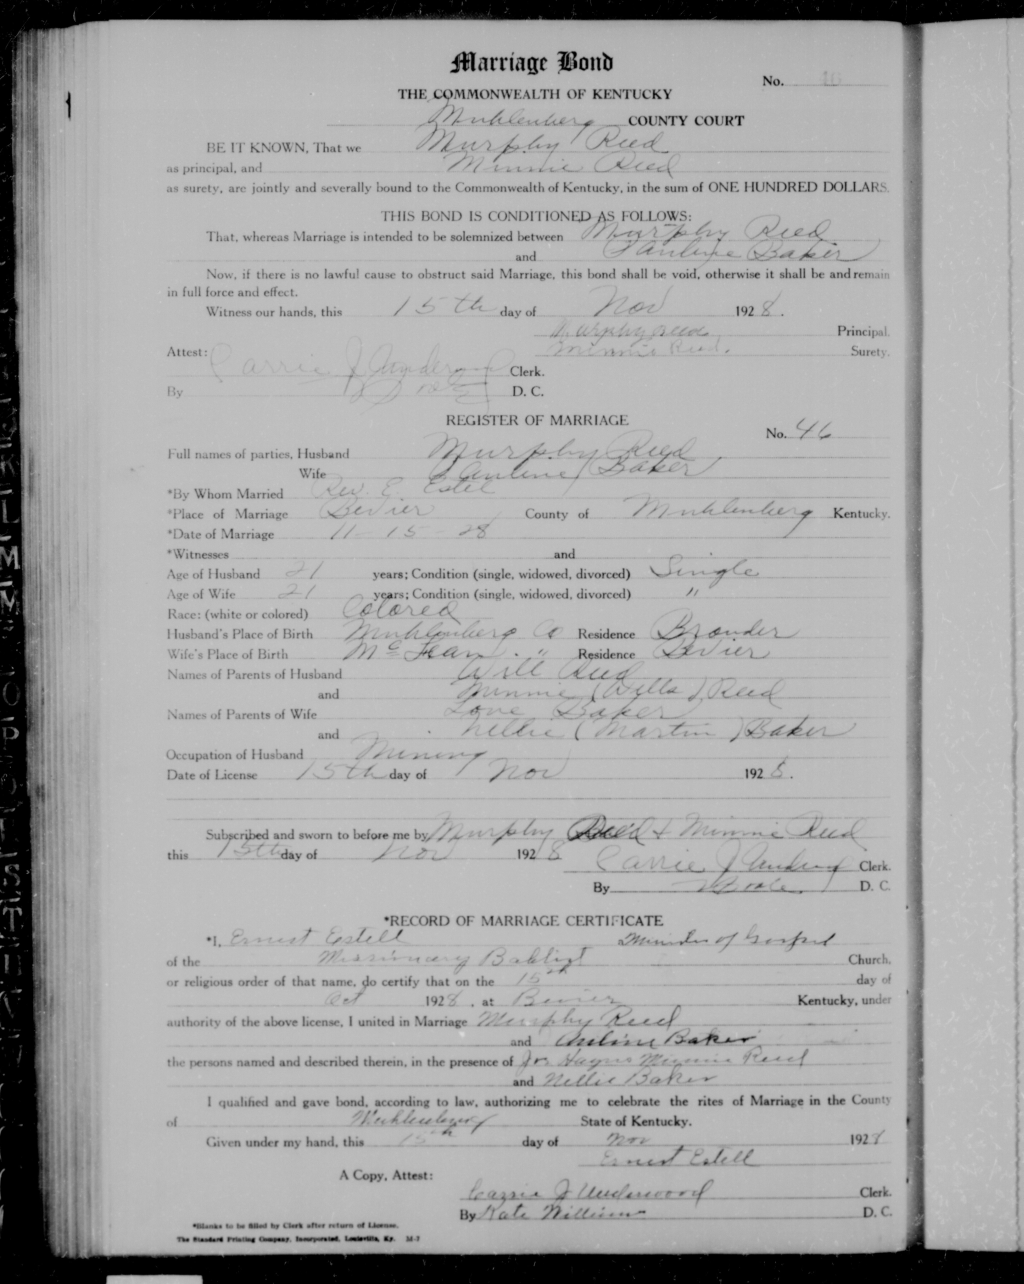 Marriage Bond
No. 46
THE COMMONWEALTH OF KENTUCKY
Muhlenberg COUNTY COURT
BE IT KNOWN, That we Murphy Reed
as principal, and Minnie Reed
as surety, are jointly and severally bound to the Commonwealth of Kentucky, in the sum of ONE HUNDRED DOLLARS.
THIS BOND IS CONDITIONED AS FOLLOWS:
That, whereas Marriage is intended to be solemnized between Murphy Reed
and Pauline Baker
Now, if there is no lawful cause to obstruct said Marriage, this bond shall be void, otherwise it shall be and remain
in full force and effect.
Witness our hands, this 15th day of Nov 1928.
Murphy Reed Principal.
Minnie Reed. Surety.
Attest: Carrie J Underwood Clerk.
By D. C.
REGISTER OF MARRIAGE
No. 46
Full names of parties, Husband Murphy Reed
Wife Pauline Baker
*By Whom Married Rev. E. Estel
*Place of Marriage Bevier County of Muhlenberg Kentucky.
*Date of Marriage 11-15-28
*Witnesses and
Age of Husband 21 years; Condition (single, widowed, divorced) Single
Age of Wife 21 years; Condition (single, widowed, divorced) "
Race: (white or colored) Colored
Husband's Place of Birth Muhlenberg Co Residence Browder
Wife's Place of Birth McLean " Residence Bevier
Names of Parents of Husband Will Reed
and Minnie (Wells) Reed
Names of Parents of Wife Love Baker
and Nellie (Martin) Baker
Occupation of Husband Mining
Date of License 15th day of Nov 1928.
Subscribed and sworn to before me by Murphy Reed & Minnie Reed
this 15th day of Nov 1928
Carrie J Underwood Clerk.
By D. C.
*RECORD OF MARRIAGE CERTIFICATE
*I, Ernest Estell Minister of Gospel
of the Missionary Babtist Church,
or religious order of that name, do certify that on the 15th day of
Oct 1928, at Bevier Kentucky, under
authority of the above license, I united in Marriage Murphy Reed
and Auline Baker
the persons named and described therein, in the presence of Jr. Hayns Minnie Reed
and Nellie Baker
I qualified and gave bond, according to law, authorizing me to celebrate the rites of Marriage in the County
of Muhlenberg State of Kentucky.
Given under my hand, this 15th day of Nov 1928
Ernest Estell
A Copy, Attest:
Carrie J Underwood Clerk.
By Kate Williams D. C.
*Blanks to be filled by Clerk after return of License.
The Standard Printing Company, Incorporated, Louisville, Ky. M-7